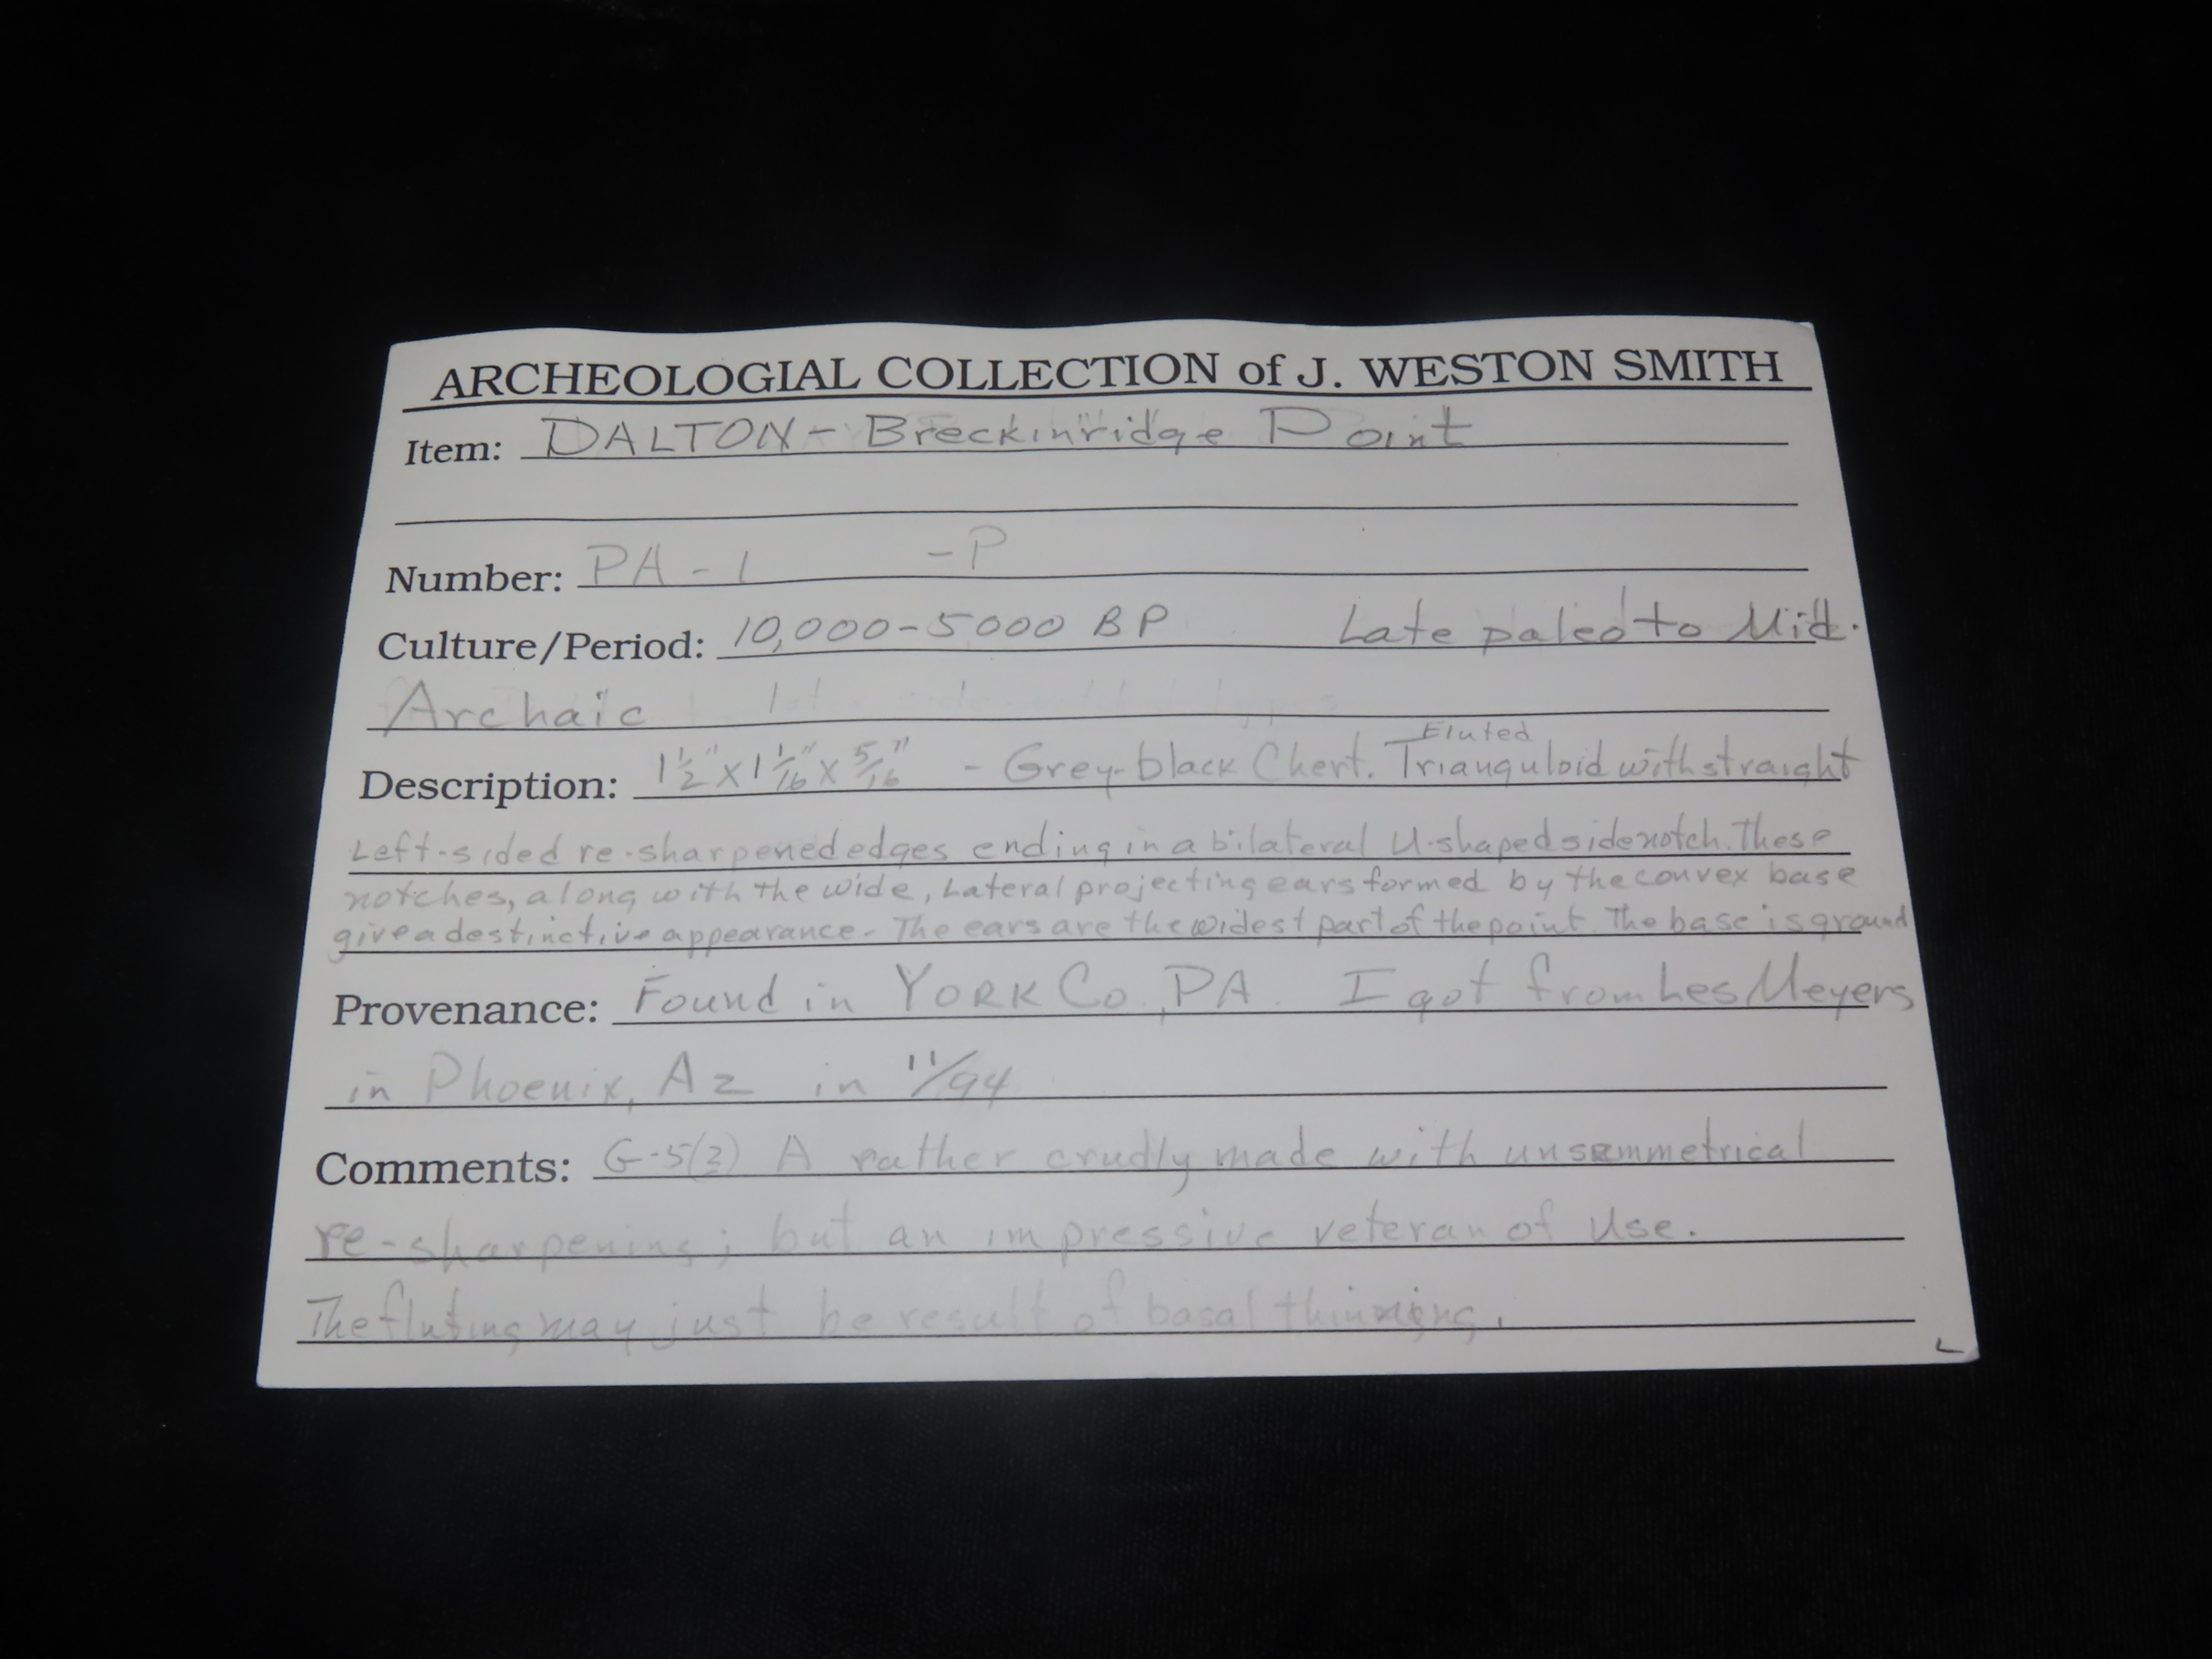 ARCHEOLOGIAL COLLECTION of J. WESTON SMITH
Item: DALTON - Breckinridge Point
Number: PA - 1 - P
Culture/Period: 10,000-5000 BP Late paleo to Mid.
Archaic
Fluted
Description: 1 1/2" x 1 1/16" x 5/16" - Grey-black Chert. Trianguloid with straight
Left-sided re-sharpened edges ending in a bilateral U-shaped side notch. These
notches, along with the wide, Lateral projecting ears formed by the convex base
give a destinctive appearance. The ears are the widest part of the point. The base is ground
Provenance: Found in YORK Co., PA. I got from Les Meyers
in Phoenix, Az in 11/94
Comments: G-5(2) A rather crudly made with unsemmetrical
re-sharpening; but an impressive veteran of Use.
The fluting may just be result of basal thinning.
L